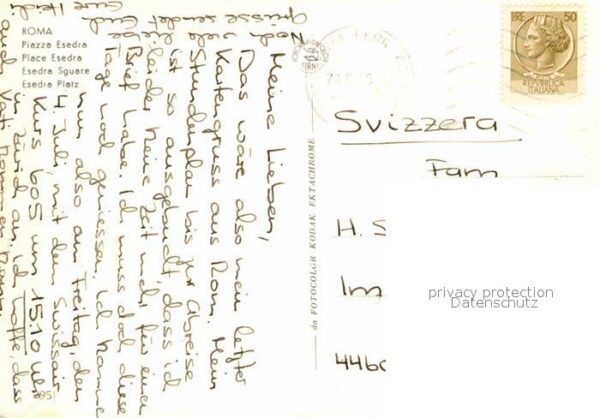 ROMA
Piazza Esedra
Place Esedra
Esedra Square
Esedra Platz
Meine Lieben,
Das wäre also mein letzter
Kartengruss aus Rom. Mein
Stundenplan bis zur Abreise
ist so ausgebucht, dass ich
leider keine Zeit mehr für einen
Brief habe. Ich muss doch diese
Tage noch geniessen. Ich komme
nun also am Freitag, den
4. Juli, mit dem Swissair
Kurs 605 um 15.10 Uhr
in Zürich an. Ich hoffe dass
auch Vati kommen kann.
Noch viele liebe
Grüsse sendet Euch
Eure Heidi
da FOTOCOLOR KODAK EKTACHROME
LIRE 50
REPVBBLICA
ITALIANA
Svizzera
Fam
H. S
Im
4460
privacy protection
Datenschutz
695